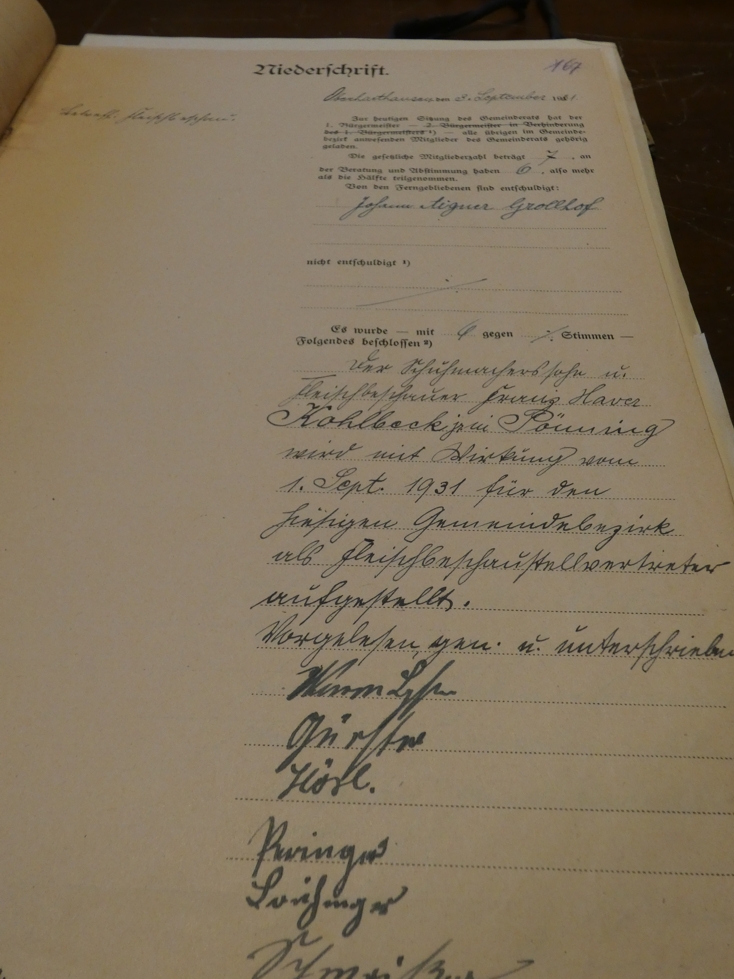 Niederschrift.
167
den 3. September 1931.
betreff. Fleischbeschau.
Zur heutigen Sitzung des Gemeinderats hat der
1. Bürgermeister — 2. Bürgermeister in Verhinderung
des 1. Bürgermeisters ¹) — alle übrigen im Gemeinde-
bezirk anwesenden Mitglieder des Gemeinderats gehörig
geladen.
Die gesetzliche Mitgliederzahl beträgt 7, an
der Beratung und Abstimmung haben 6, also mehr
als die Hälfte teilgenommen.
Von den Ferngebliebenen sind entschuldigt:
Johann Aigner Grollhof
nicht entschuldigt ¹)
Es wurde — mit 6 gegen ./. Stimmen —
Folgendes beschlossen ²)
Der Schuhmacherssohn u.
Fleischbeschauer Franz Xaver
Kohlbeck jun. Pönning
wird mit Wirkung vom
1. Sept. 1931 für den
hiesigen Gemeindebezirk
als Fleischbeschaustellvertreter
aufgestellt.
Vorgelesen, gen. u. unterschrieben
Gürster
Hösl.
Peringer